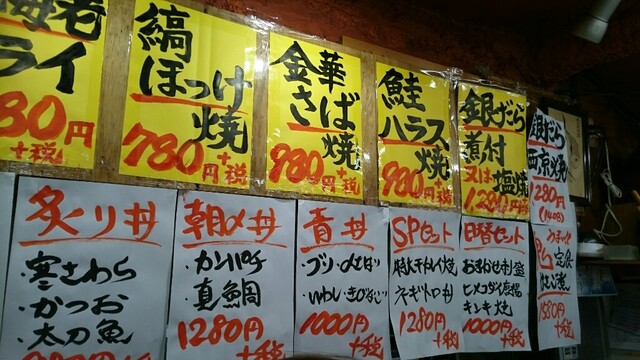 海老
ライ
80円
+税
縞
ほっけ
焼
780円
+税
金華
さば
焼
980円
+税
鮭
ハラス
焼
980円
+税
銀だら
煮付
又は塩焼
1280円
+税
銀だら
西京焼
1280円
(1408)
炙り丼
・寒さわら
・かつお
・太刀魚
朝〆丼
・カンパチ
・真鯛
1280円
+税
青丼
・ブリ
1000円
+税
SPセット
ネギトロ丼
1280円
+税
日替セット
おまかせ刺盛
キンキ焼
1000円
+税
定食
1580円
+税